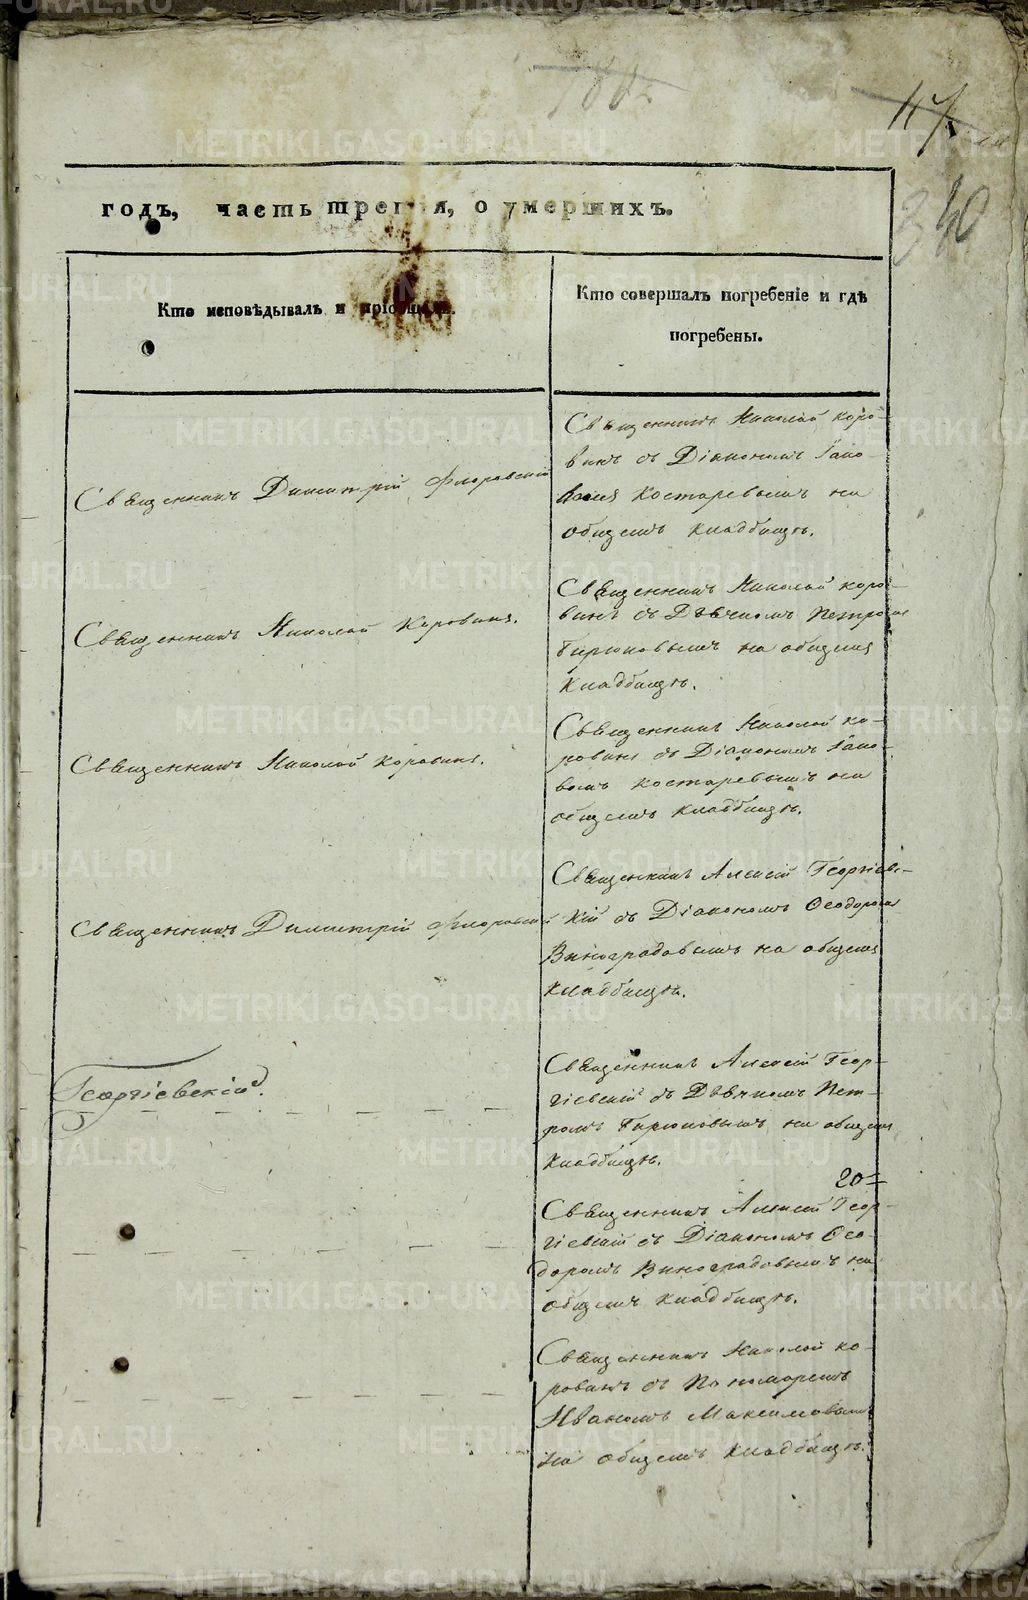 117
340
годъ, часть третія, о умершихъ.
Кто исповѣдывалъ и пріобщалъ.
Кто совершалъ погребеніе и гдѣ
погребены.
Священникъ Димитрій Флоровскій
Священникъ Николай Коро-
винъ съ Діакономъ Іако-
вомъ Костаревымъ на
общемъ кладбищѣ.
Священникъ Николай Коровинъ.
Священникъ Николай Коро-
винъ съ Дьячкомъ Петромъ
Бирюковымъ на общемъ
кладбищѣ.
Священникъ Николай Коровинъ.
Священникъ Николай Ко-
ровинъ съ Діакономъ Іако-
вомъ Костаревымъ на
общемъ кладбищѣ.
Священникъ Димитрій Флоровскій
Священникъ Алексій Георгіевс-
кій съ Діакономъ Ѳеодоромъ
Виноградовымъ на общемъ
кладбищѣ.
Георгіевскій.
Священникъ Алексій Геор-
гіевскій съ Дьячкомъ Пет-
ромъ Бирюковымъ на общемъ
кладбищѣ.
20
Священникъ Алексій Геор-
гіевскій съ Діакономъ Ѳео-
доромъ Виноградовымъ на
общемъ кладбищѣ.
Священникъ Николай Ко-
ровинъ съ Пономаремъ
Иваномъ Максимовымъ
на общемъ кладбищѣ.
METRIKI.GASO-URAL.RU